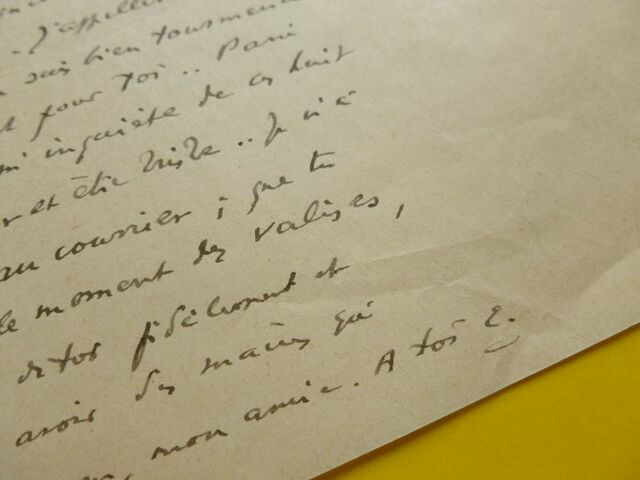 J'appelle
suis bien tourmenté
pour toi .. Paris
m'inquiète de ces huit
r et être triste .. Je n'ai
au courrier ; que tu
le moment des valises,
fidèlement et
avoir des mains qui
, mon amie. A toi E.